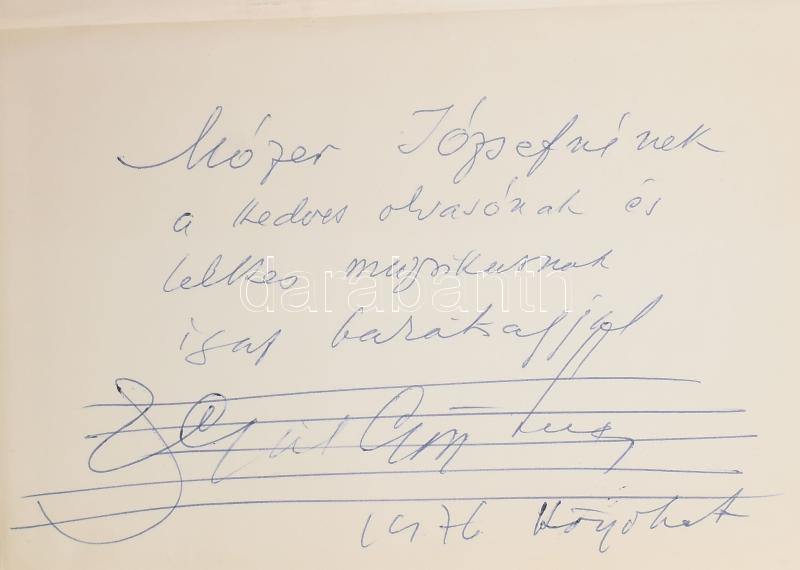 Mózer Józsefnének
a kedves olvasónak és
lelkes muzsikusnak
igaz barátsággal
1976 Könyvhét
darabanth